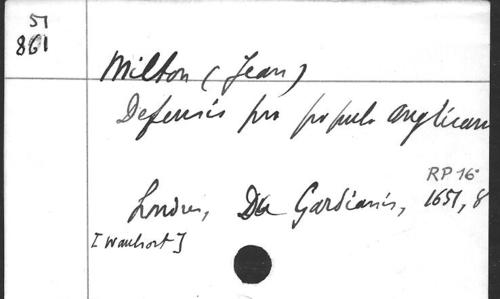 51
861
Milton (Jean)
Defensio pro populo anglicano
RP 16°
Londres, Du Gardianis, 1651, 8
[Wanhort]